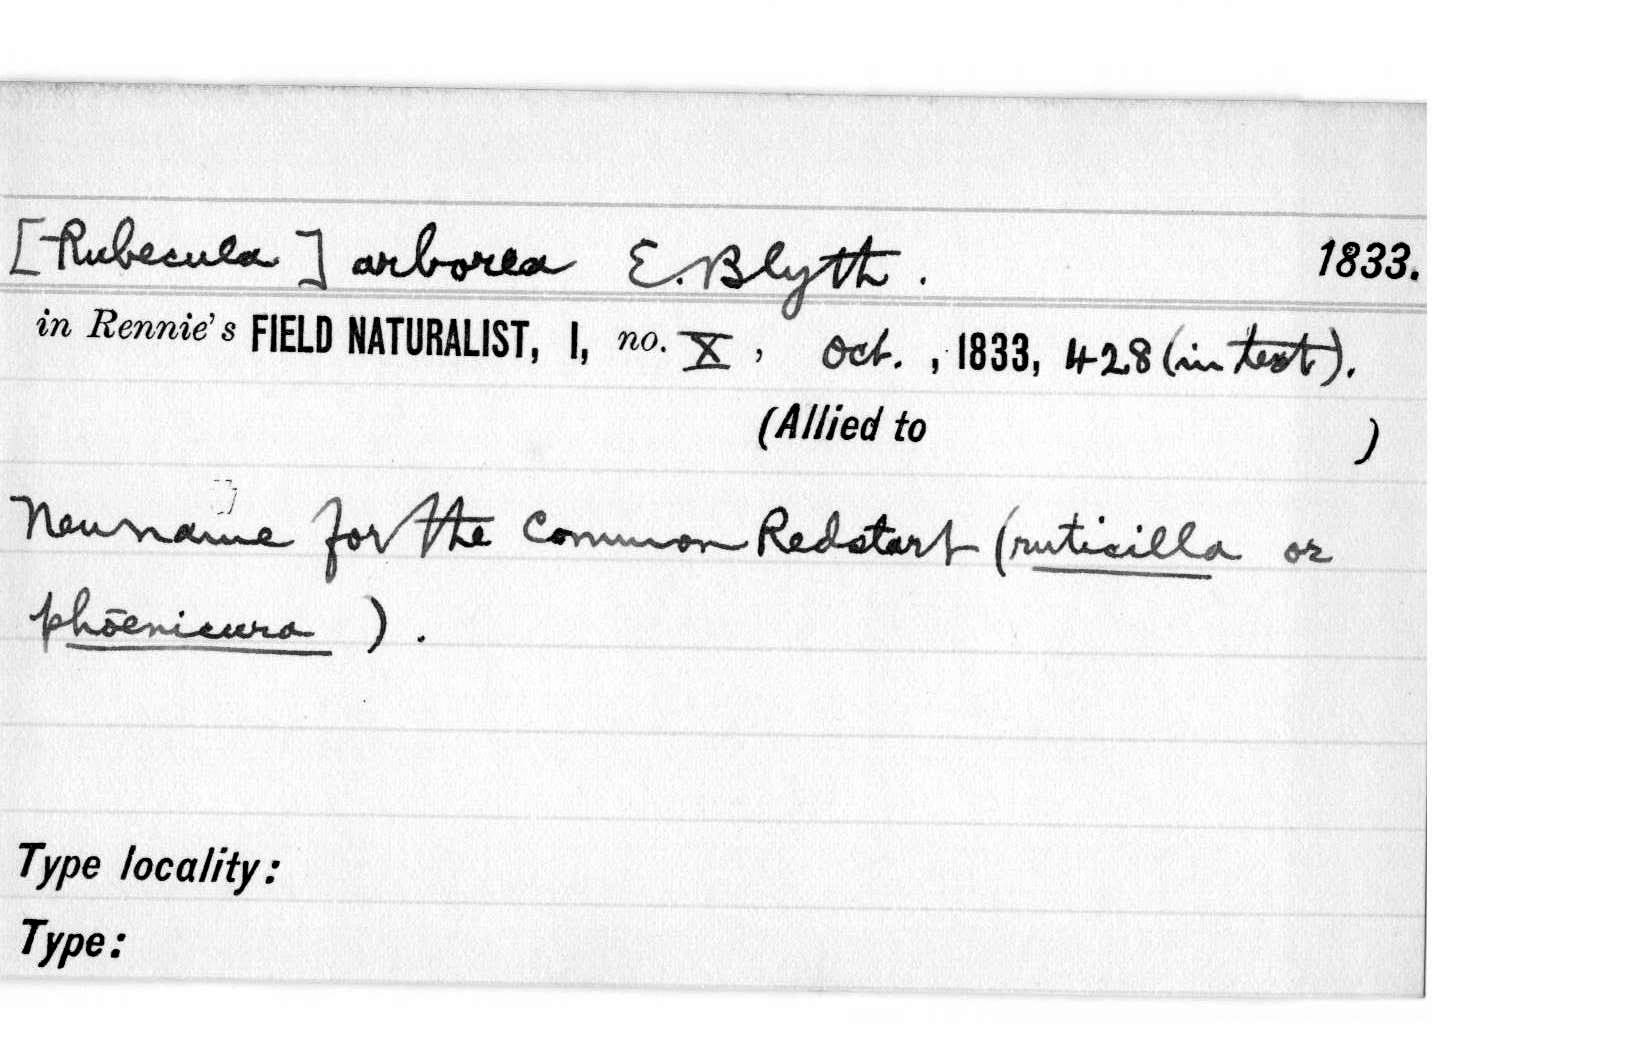 [Rubecula] arborea E. Blyth. 1833.
in Rennie's FIELD NATURALIST, I, no. X, Oct., 1833, 428 (in text).
(Allied to )
New name for the Common Redstart (ruticilla or
phōenicura ).
Type locality:
Type: